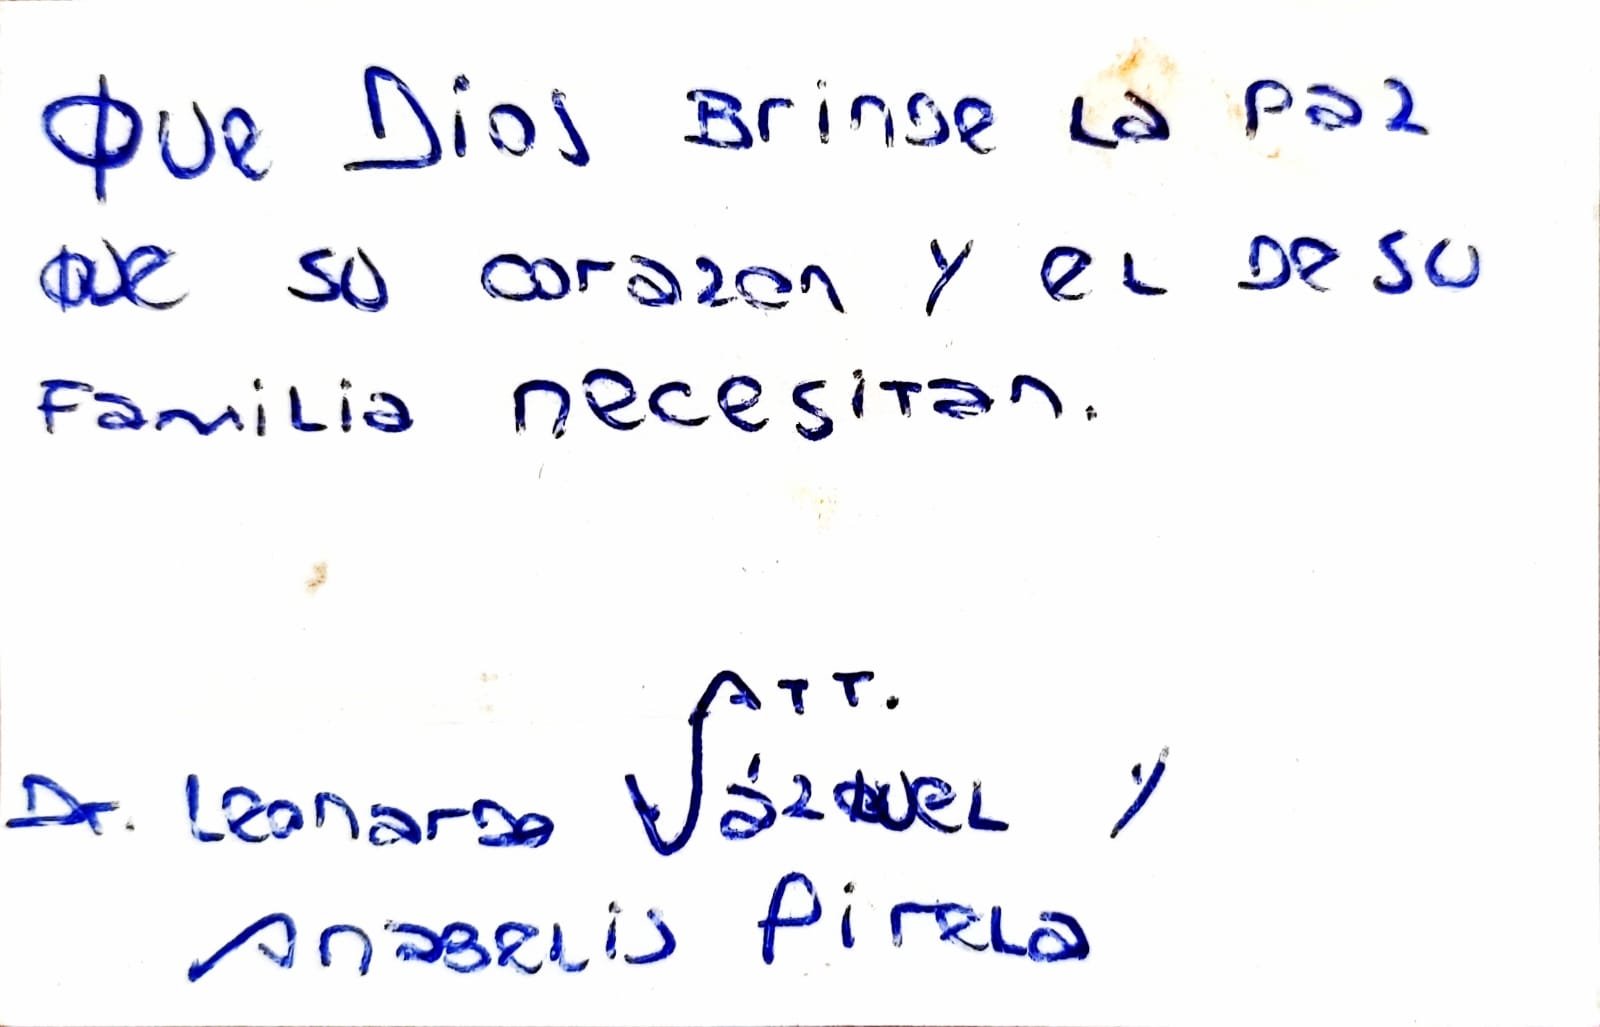 Que Dios Brinde La Paz
que su corazon y el de su
Familia necesitan.
ATT.
Dr. Leonardo Vázquez y
Anabelis Pirela